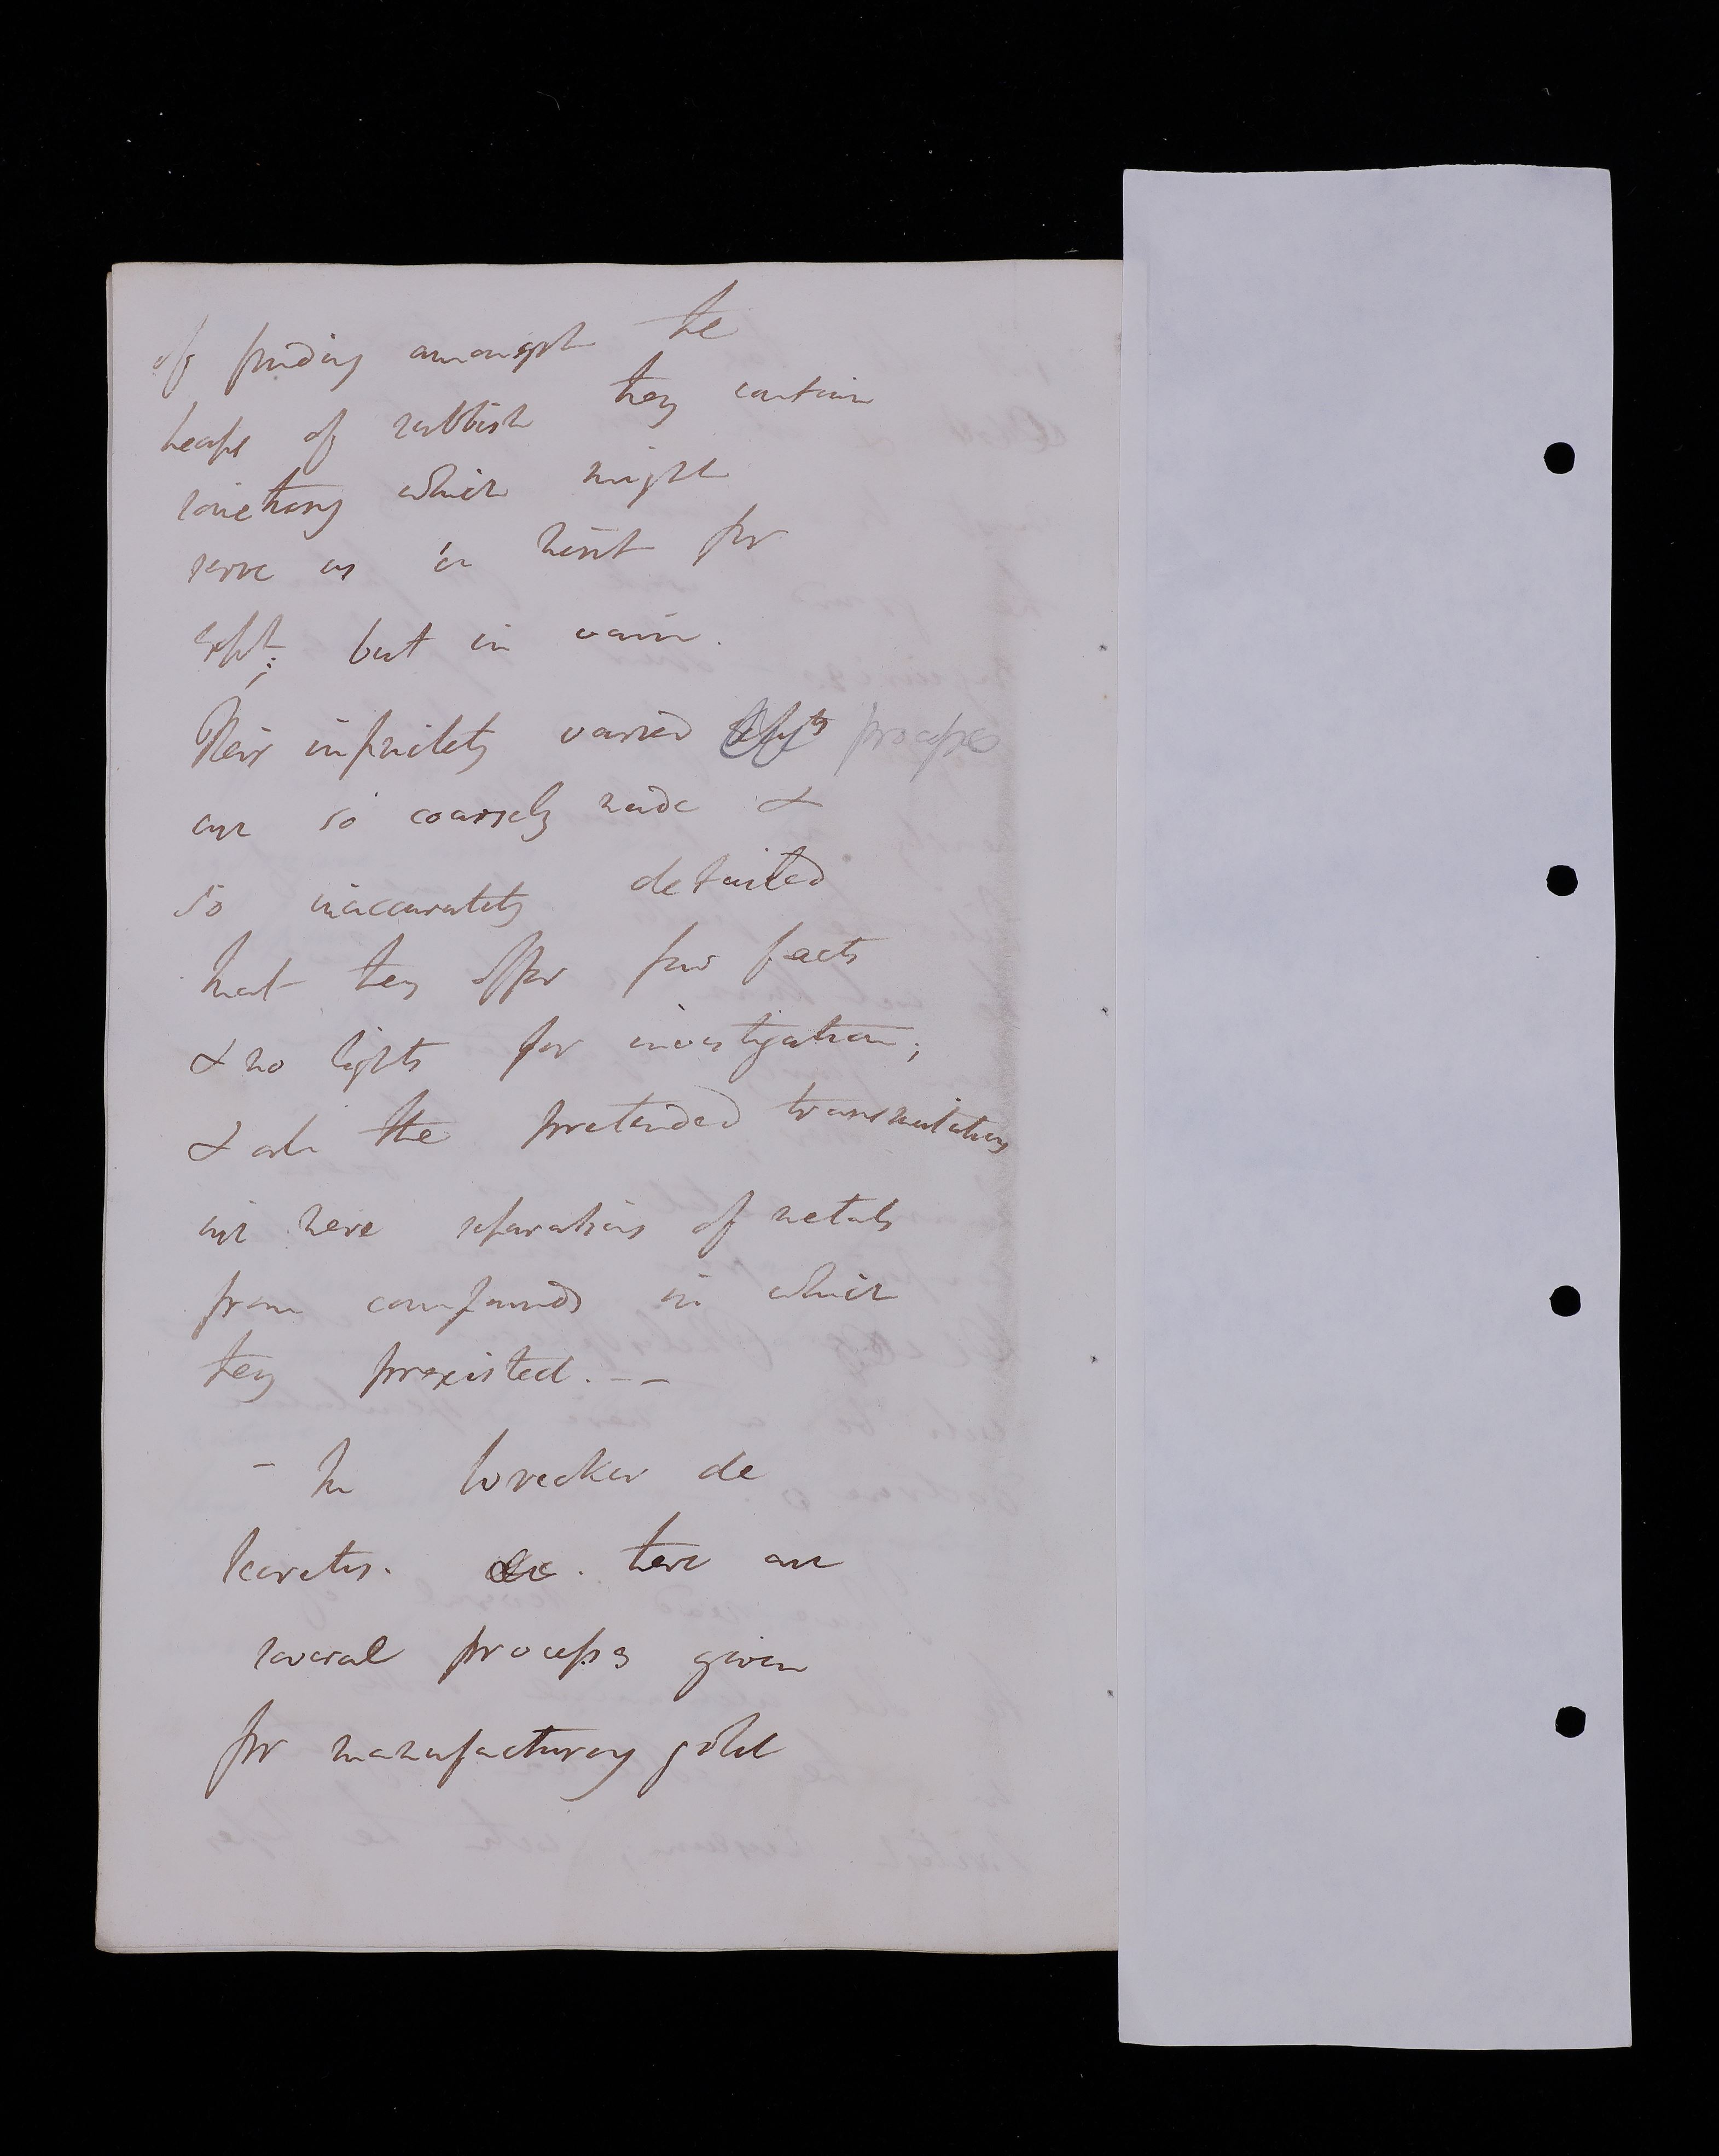 of finding amongst the
heaps of rubbish they contain
something which might
serve as a hint for
Expt; but in vain.
Their infinitely varied expts process
are so coarsely made &
so inaccurately detailed
that they offer few facts
& no lights for investigation;
& all the pretended transmutations
are mere separations of metals
from compounds in which
they prexisted. - -
- In
Secretes. &c. there are
several processes given
for manufacturing gold